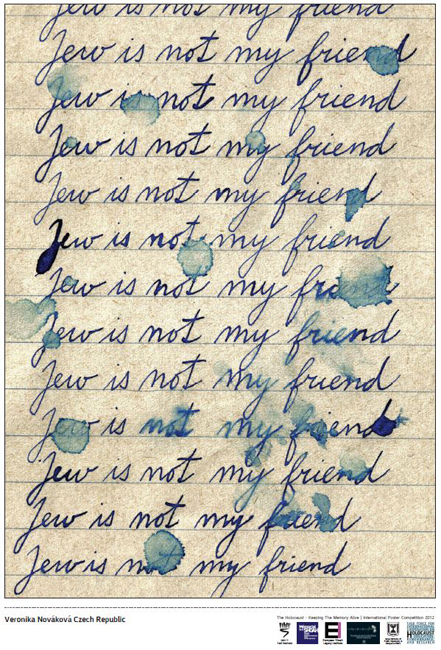 Jew is not my friend
Jew is not my friend
Jew is not my friend
Jew is not my friend
Jew is not my friend
Jew is not my friend
Jew is not my friend
Jew is not my friend
Jew is not my friend
Jew is not my friend
Jew is not my friend
Jew is not my friend
Jew is not my friend
The Holocaust - Keeping The Memory Alive | International Poster Competition 2012
Veronika Nováková Czech Republic
HOLOCAUST